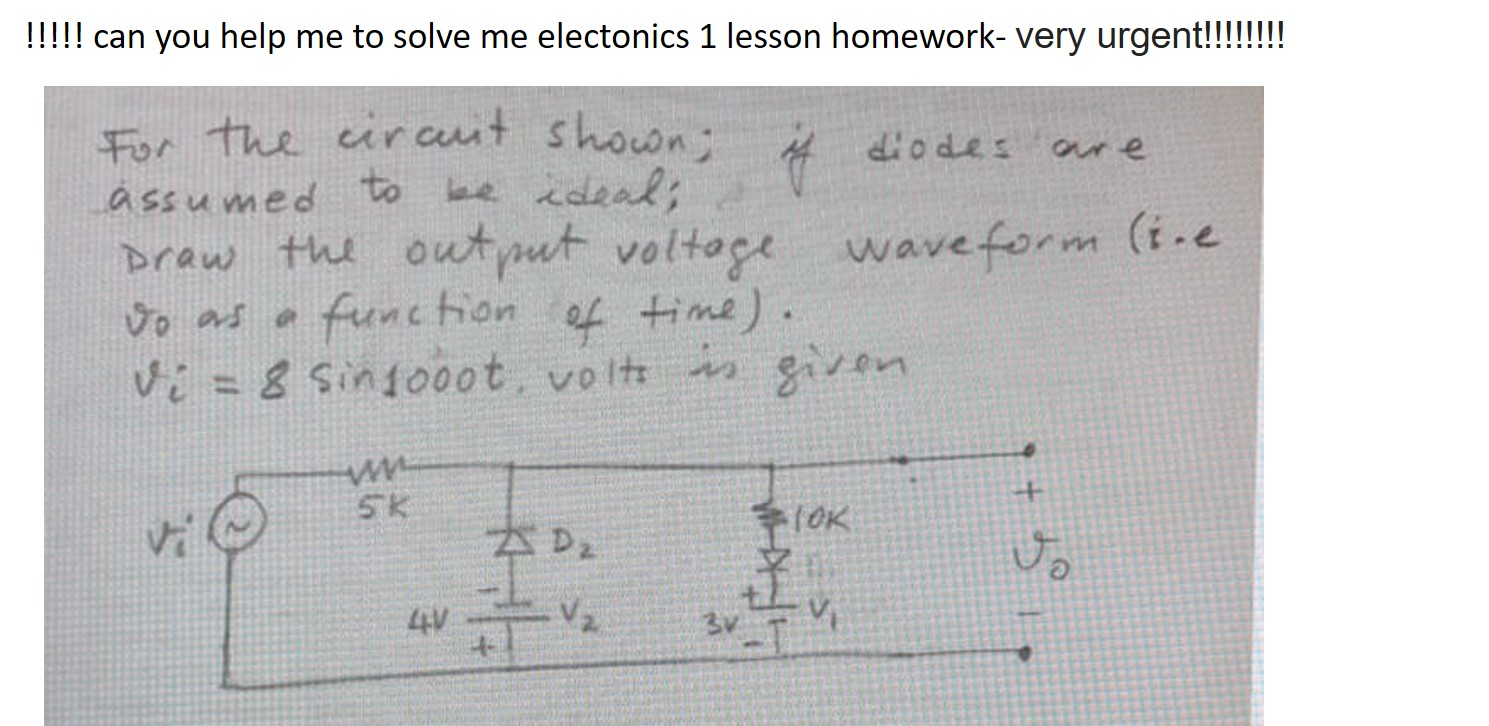 !!!!! can you help me to solve me electonics 1 lesson homework- very urgent!!!!!!!!
For the circuit shown; if diodes are
assumed to be ideal;
Draw the output voltage waveform (i.e
vo as a function of time).
vi = 8 sin1000t. volts is given
5K
10K
vi
~
D2
+
vo
-
-
4V
V2
+
+
3V
V1
-